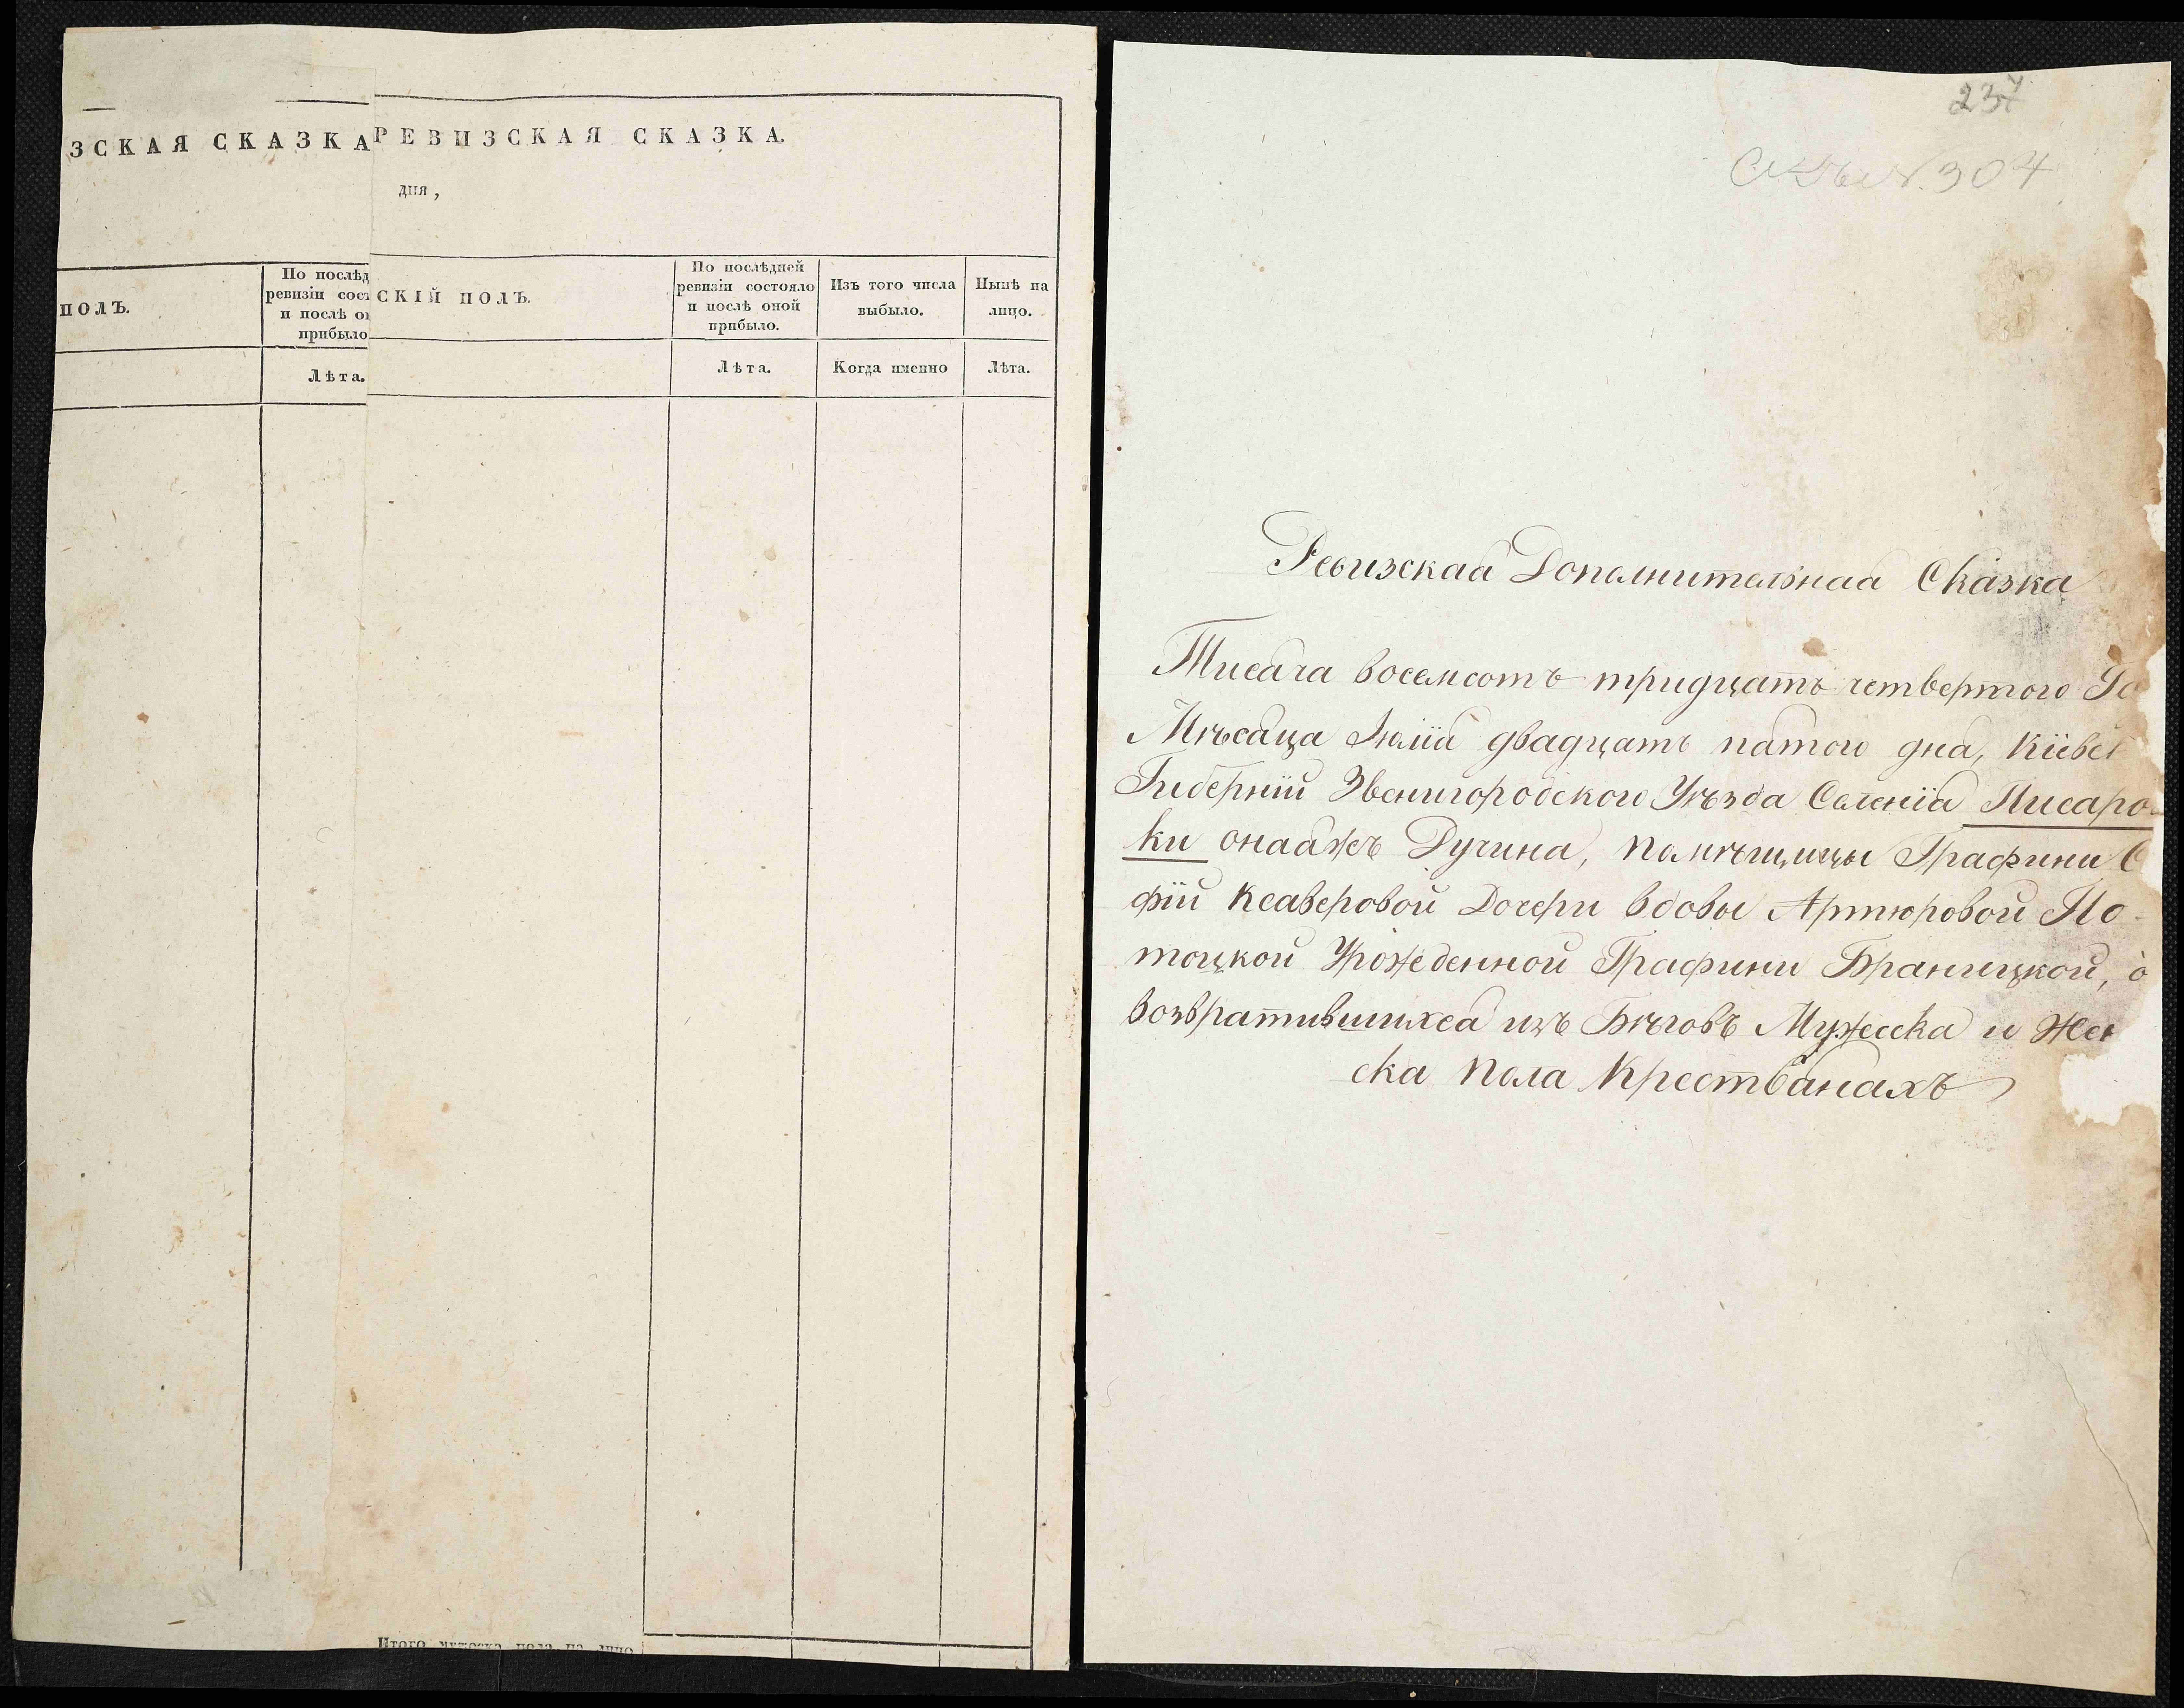 ЗСКАЯ СКАЗКА
ПОЛЪ.
По послѣд
ревизіи сост
и послѣ он
прибыло
Лѣта.
РЕВИЗСКАЯ СКАЗКА.
дня,
СКІЙ ПОЛЪ.
По послѣдней
ревизіи состояло
и послѣ оной
прибыло.
Изъ того числа
выбыло.
Нынѣ на
лицо.
Лѣта.
Когда именно
Лѣта.
Итого мужеска пола на лицо
237
304
Ревизская Дополнительная Сказка
Тисяча восемсотъ тридцать четвертого Го
Мѣсяца Іюлія двадцать пятого дня, Кіевск
Гиберній Звенигородского Уѣзда Селенія Писаро-
ки онаяжъ Ручина, помѣщицы Графини С
фіи Ксаверовой Дочери вдовы Артюровой По-
тоцкой Урожденной Графини Браницкой, о
возвратившихся изъ Бѣговъ Мужеска и Жен
ска пола Крестьянахъ